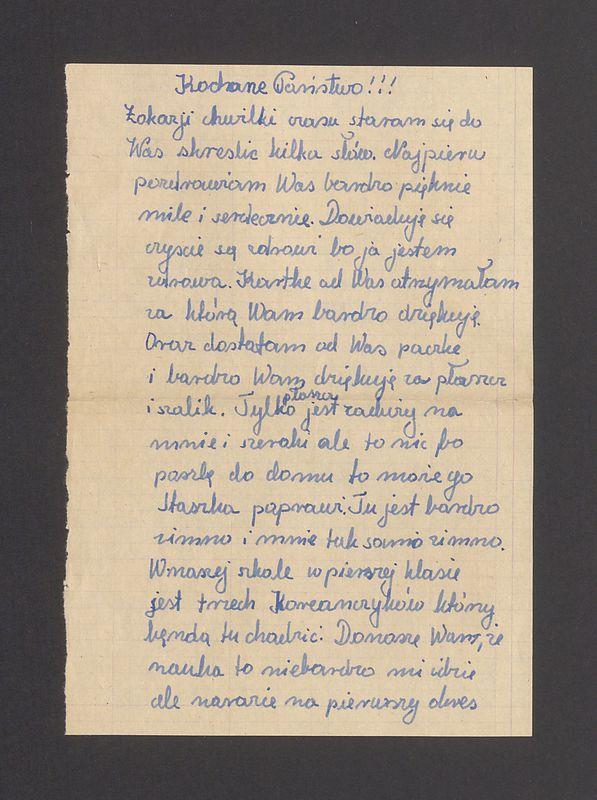 Kochane Państwo!!!
Zokazji chwilki czasu staram się do
Was skreslic kilka słów. Najpierw
pozdrawiam Was bardzo pięknie
mile i serdecznie. Dowiaduję się
czyscie są zdrowi bo ja jestem
zdrowa. Kartke od Was otrzymałam
za którą Wam bardzo dziękuję.
Oraz dostałam od Was paczke
i bardzo Wam dziękuję za płaszcz
płaszcz
i szalik. Tylko jest zaduży na
mnie i szeroki ale to nic bo
poszlę do domu to może go
Staszka poprawi. Tu jest bardzo
zimno i mnie tak samo zimno.
Wnaszej szkole w pierszej klasie
jest trzech Koreanczyków który
będą tu chodzić. Donoszę Wam, że
nauka to niebardzo mi idzie
ale narazie na pierwszy okres